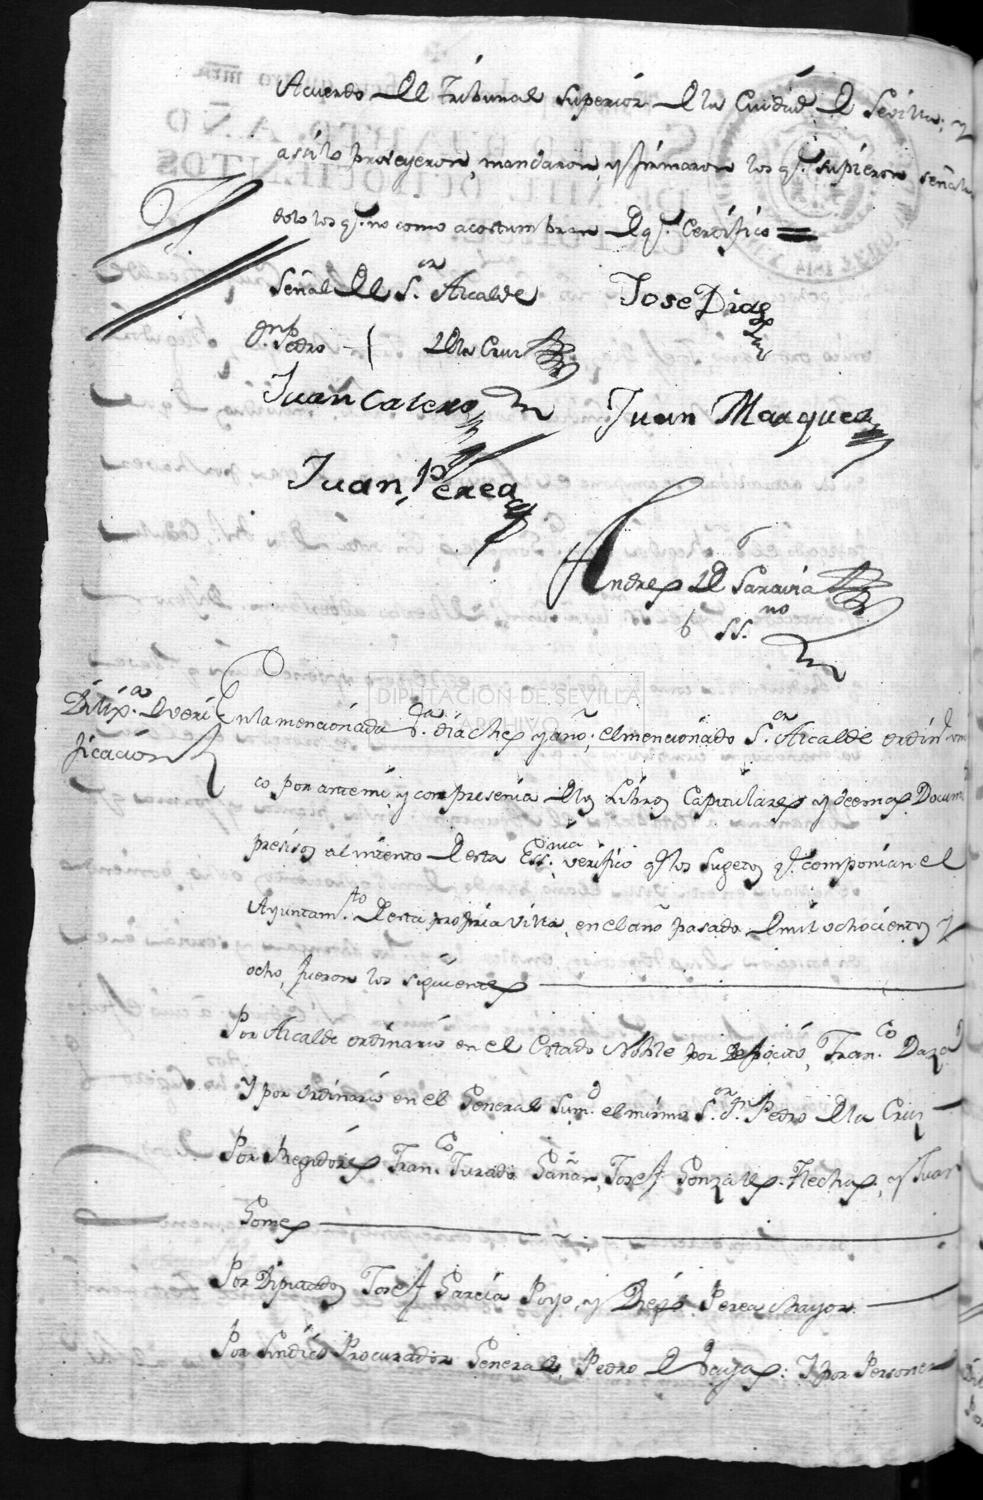 Acuerdo del Tribunal Superior de la Ciudad de Sevilla; y
asi lo proveyeron, mandaron y firmaron los qe. supieron señalan
dolo los qe. no como acostumbran de qe. Certifico =
Señal del Sor. Alcalde
Jose Diaz
Dn. Pedro de la Cruz
Juan Calero
Juan Marquez
Juan Perea
Andres de Saravia
SS.no
Dilixa. de veri
ficacion
En la mencionada Va. dia mes y año; el mencionado Sor. Alcalde ordin
co por ante mi y con presenia de los Libros Capitulares y demas Docum
presisos al intento de esta Essna. verifico qe. los Sugetos qe. componian el
Ayuntamto. de esta propria Villa, en el año pasado de mil ochocientos y
ocho, fueron los siguientes
Por Alcalde ordinario en el Estado Noble por deposito, Franco. Daza
Y por ordinario en el General el mismo Sor. Dn. Pedro de la Cruz
Por Regidores Franco. Jurado Gañan, Josef Gonzales Flechas, y Juan
Gomes
Por Diputados Josef Garcia Poyo, y Diego Perea mayor
Por Sindico Procurador General, Pedro de Vayas: Y por Personero
DIPUTACIÓN DE SEVILLA
ARCHIVO